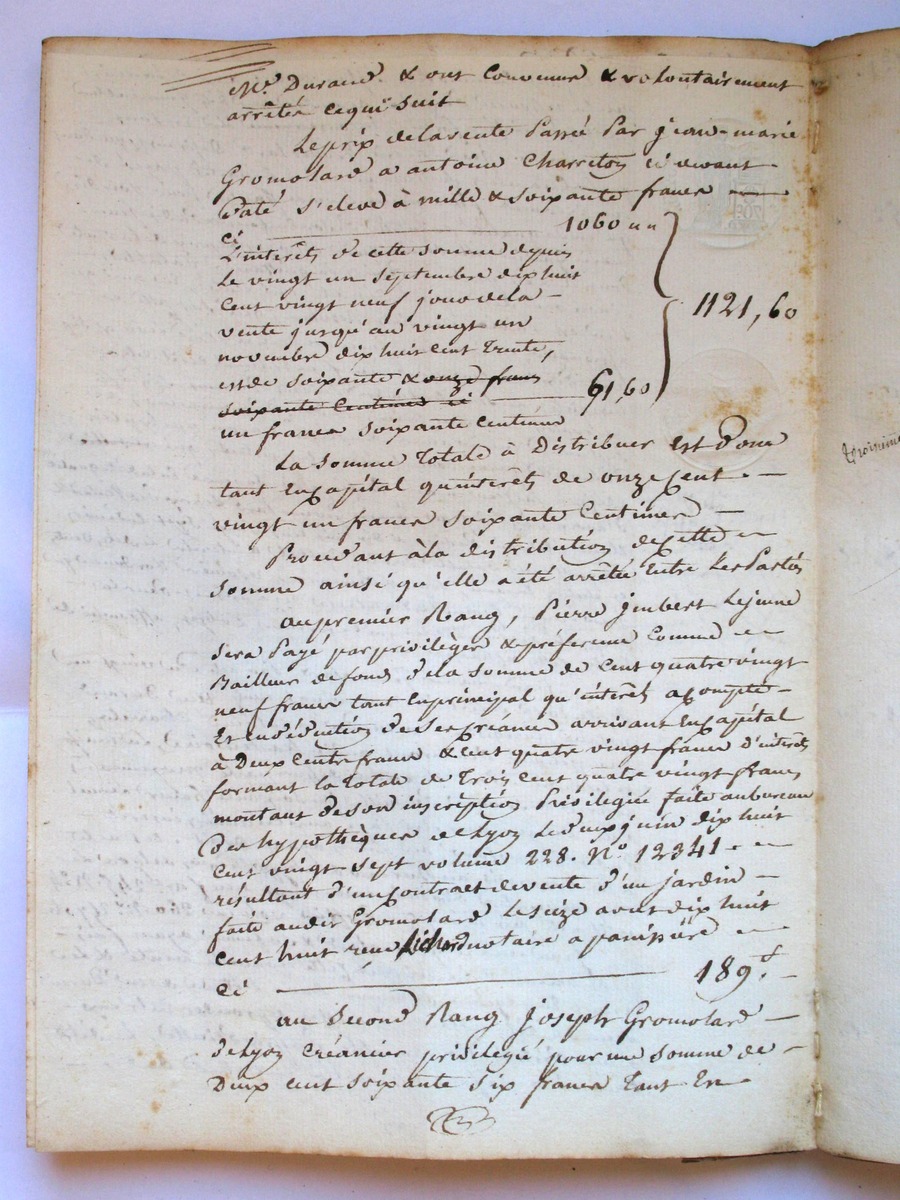 Me Durand & ont Convenus & volontairement
arrêtés cequi Suit
Le prix de la vente Passé Par jean-marie
Gromolard a antoine Charreton Ci devant
Daté S'eleve à mille & Soixante francs
Ci 1060 " "
L'interêts de cette Somme depuis
Le vingt un Septembre dix huit
Cent vingt neuf jour de la
vente jusqu'au vingt un
novembre dix huit Cent Trente,
1121,60
est de Soixante & onze francs
Soixante Centimes ci 61,60
un francs Soixante Centimes
La Somme Totale à Distribuer Est Donc
tant En Capital qu'interêts de onze Cent
vingt un francs Soixante Centimes
Procedant à la distribution de Cette
Somme ainsi qu'elle a été arrêtée Entre Les Parties
au premier Rang, Pierre jmbert Lejeune
Sera Payé par privilèges & préference Comme
Bailleur de fonds de la Somme de Cent quatre vingt
neuf francs tant En principal qu'intérêts a Compte
Et En déduction de Ses Créances arrivant En Capital
à Deux Cents francs & Cent quatre vingt francs d'interêts
formant la Totale de Trois Cent quatre vingt francs
montant de Son inscription Privilegiée faite au bureau
Des hypothèques de Lyon Le deux juin dix huit
Cent vingt Sept volume 228. No 12341.
résultant d'un Contract de vente d'un jardin
faite audit Gromolard Le Seize avout dix huit
Cent huit reçue Richard notaire a panissière
Ci 189f.
au Second Rang Joseph Gromolard
De Lyon Créancier privilégié pour une Somme de
Deux Cent Soixante Six francs Tant En